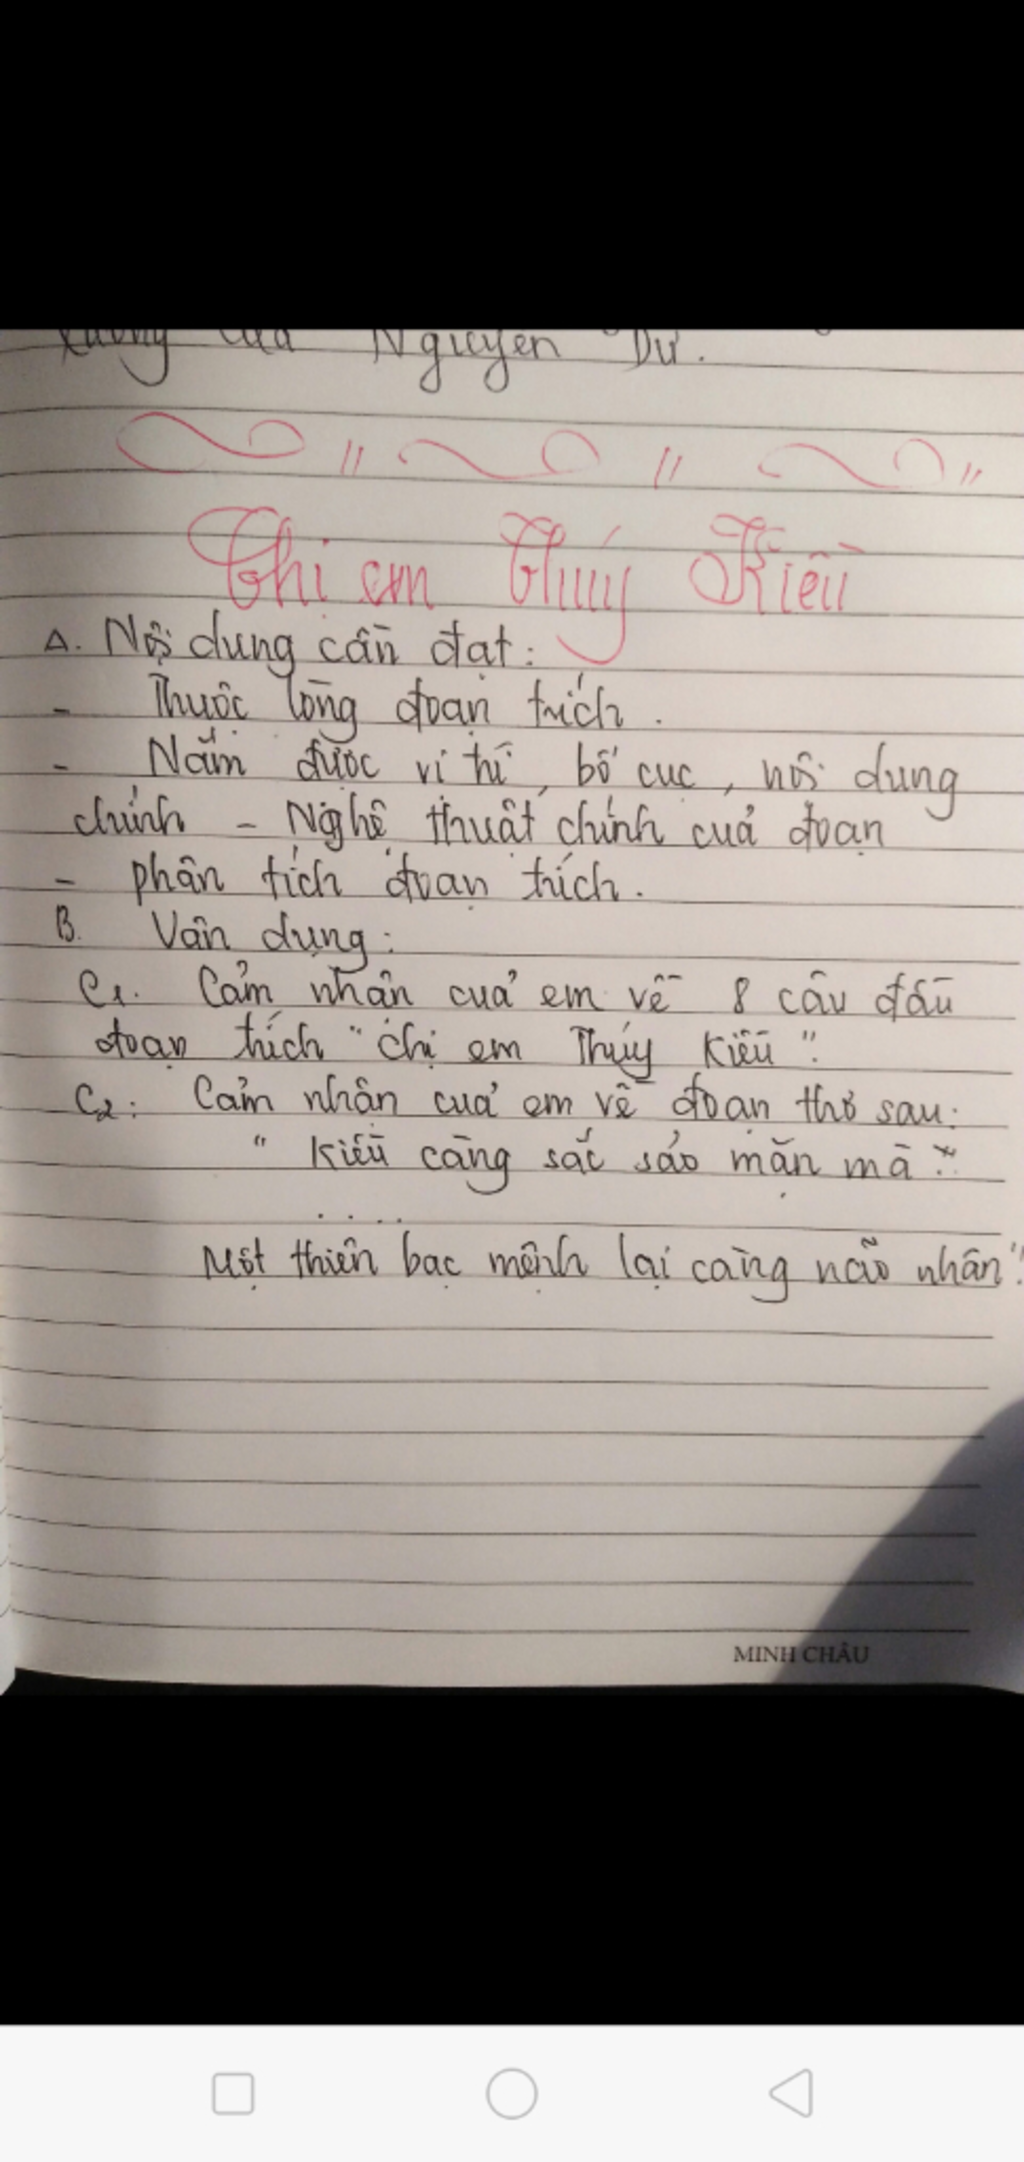 xương của Nguyễn Dữ.
Chị em Thúy Kiều
A. Nội dung cần đạt:
- Thuộc lòng đoạn trích.
- Nắm được vị trí, bố cục, nội dung
chính - Nghệ thuật chính cuả đoạn
- phân tích đoạn trích.
B. Vận dụng:
C1. Cảm nhận cuả em về 8 câu đầu
đoạn trích "chị em Thúy Kiều".
C2: Cảm nhận cuả em về đoạn thơ sau:
" Kiều càng sắc sảo mặn mà
....
Một thiên bạc mệnh lại càng não nhân".
MINH CHÂU